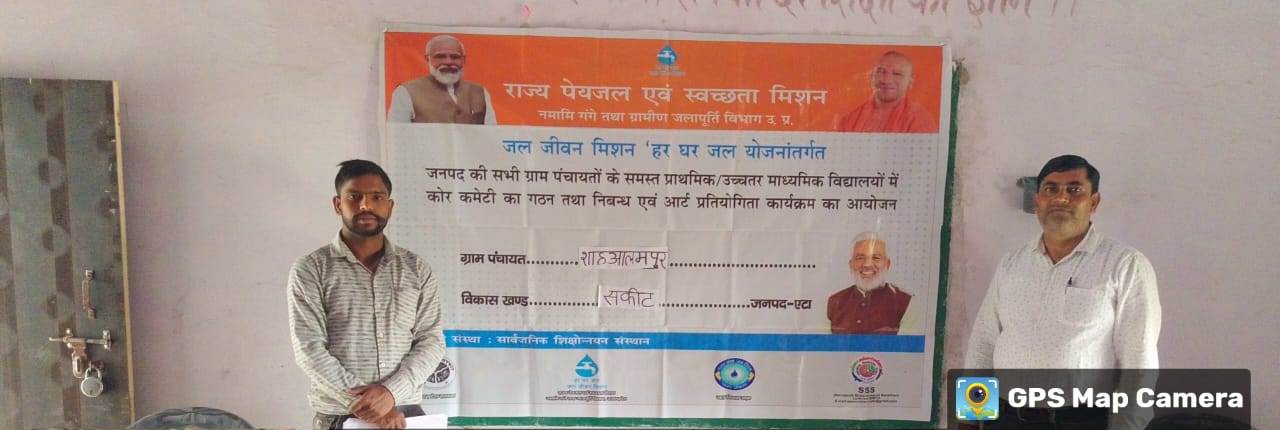 राज्य पेयजल एवं स्वच्छता मिशन
नमामि गंगे तथा ग्रामीण जलापूर्ति विभाग उ. प्र.
जल जीवन मिशन 'हर घर जल योजनांतर्गत
जनपद की सभी ग्राम पंचायतों के समस्त प्राथमिक/उच्चतर माध्यमिक विद्यालयों में
कोर कमेटी का गठन तथा निबन्ध एवं आर्ट प्रतियोगिता कार्यक्रम का आयोजन
ग्राम पंचायत...........शाहआलमपुर................................
विकास खण्ड...............सकीट....................जनपद-एटा
संस्था : सार्वजनिक शिक्षोन्नयन संस्थान
हर घर जल
जल जीवन मिशन
SSS
GPS Map Camera